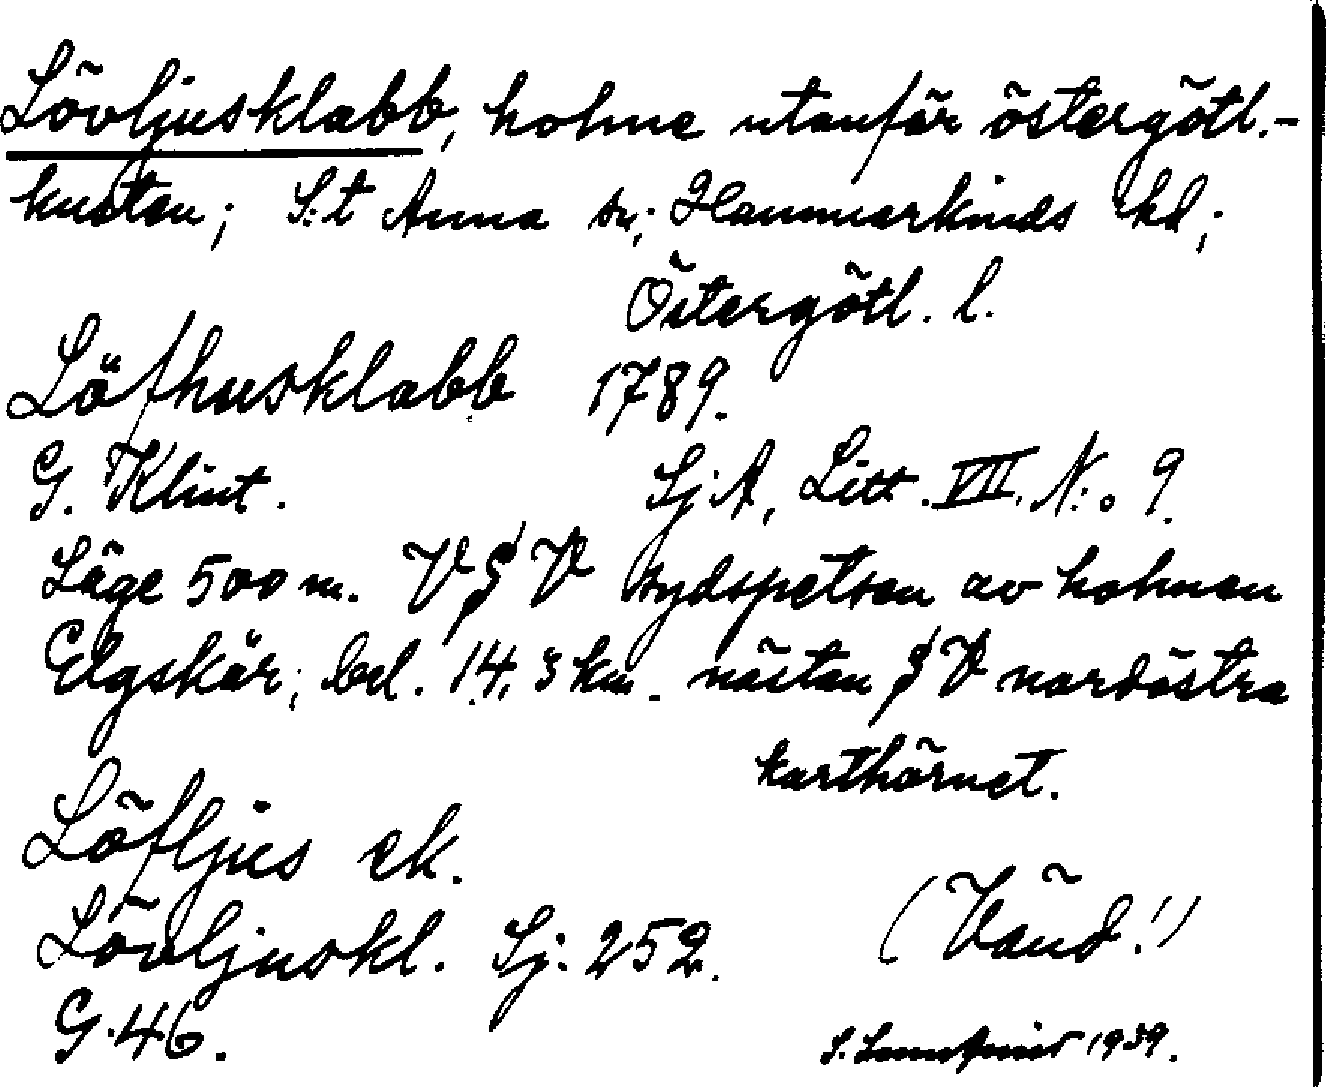 Lövljusklabb, holme utanför östergötl.-
kusten; S:t Anna sn; Hammarkinds hd;
Östergötl. l.
Löfhusklabb 1789.
G. Klint. Sj.A, Litt. VII. N:o 9.
Läge 500 m. V S V sydspetsen av holmen
Elgskär; bel. 14,3 km. nästan S V nordöstra
karthörnet.
Löfljus ek.
Lövljuskl. Sj. 252.
(Vänd!)
G. 46.
1939.